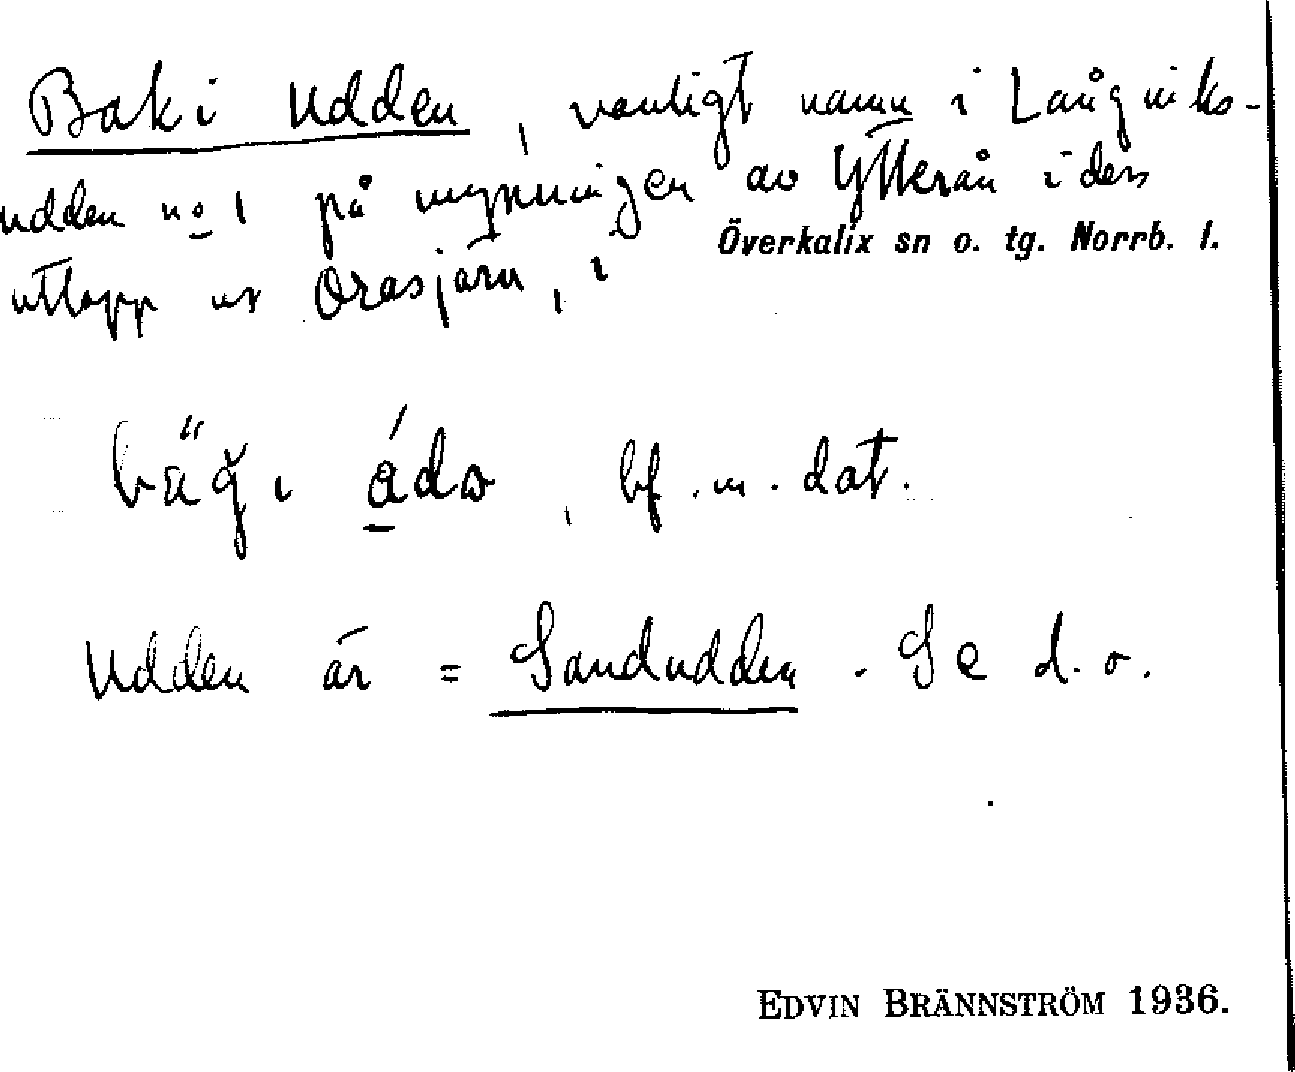 Bak i Udden, vanligt namn i Långviks-
udden no 1 på mynningen av Ytterån i dess
Överkalix sn o. tg. Norrb. l.
utlopp ur Orasjärn, i
bf. m. dat.
Udden är = Sandudden. Se d. o.
EDVIN BRÄNNSTRÖM 1936.